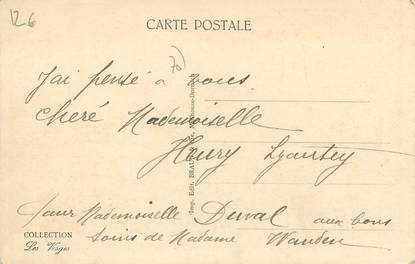 12.6
CARTE POSTALE
J'ai pensé à vous
cheré Mademoiselle
Henry Lyautey
pour Mademoiselle Duval aux bons
soins de Madame
COLLECTION
Les Vosges
Imp. Edit. BRAUN